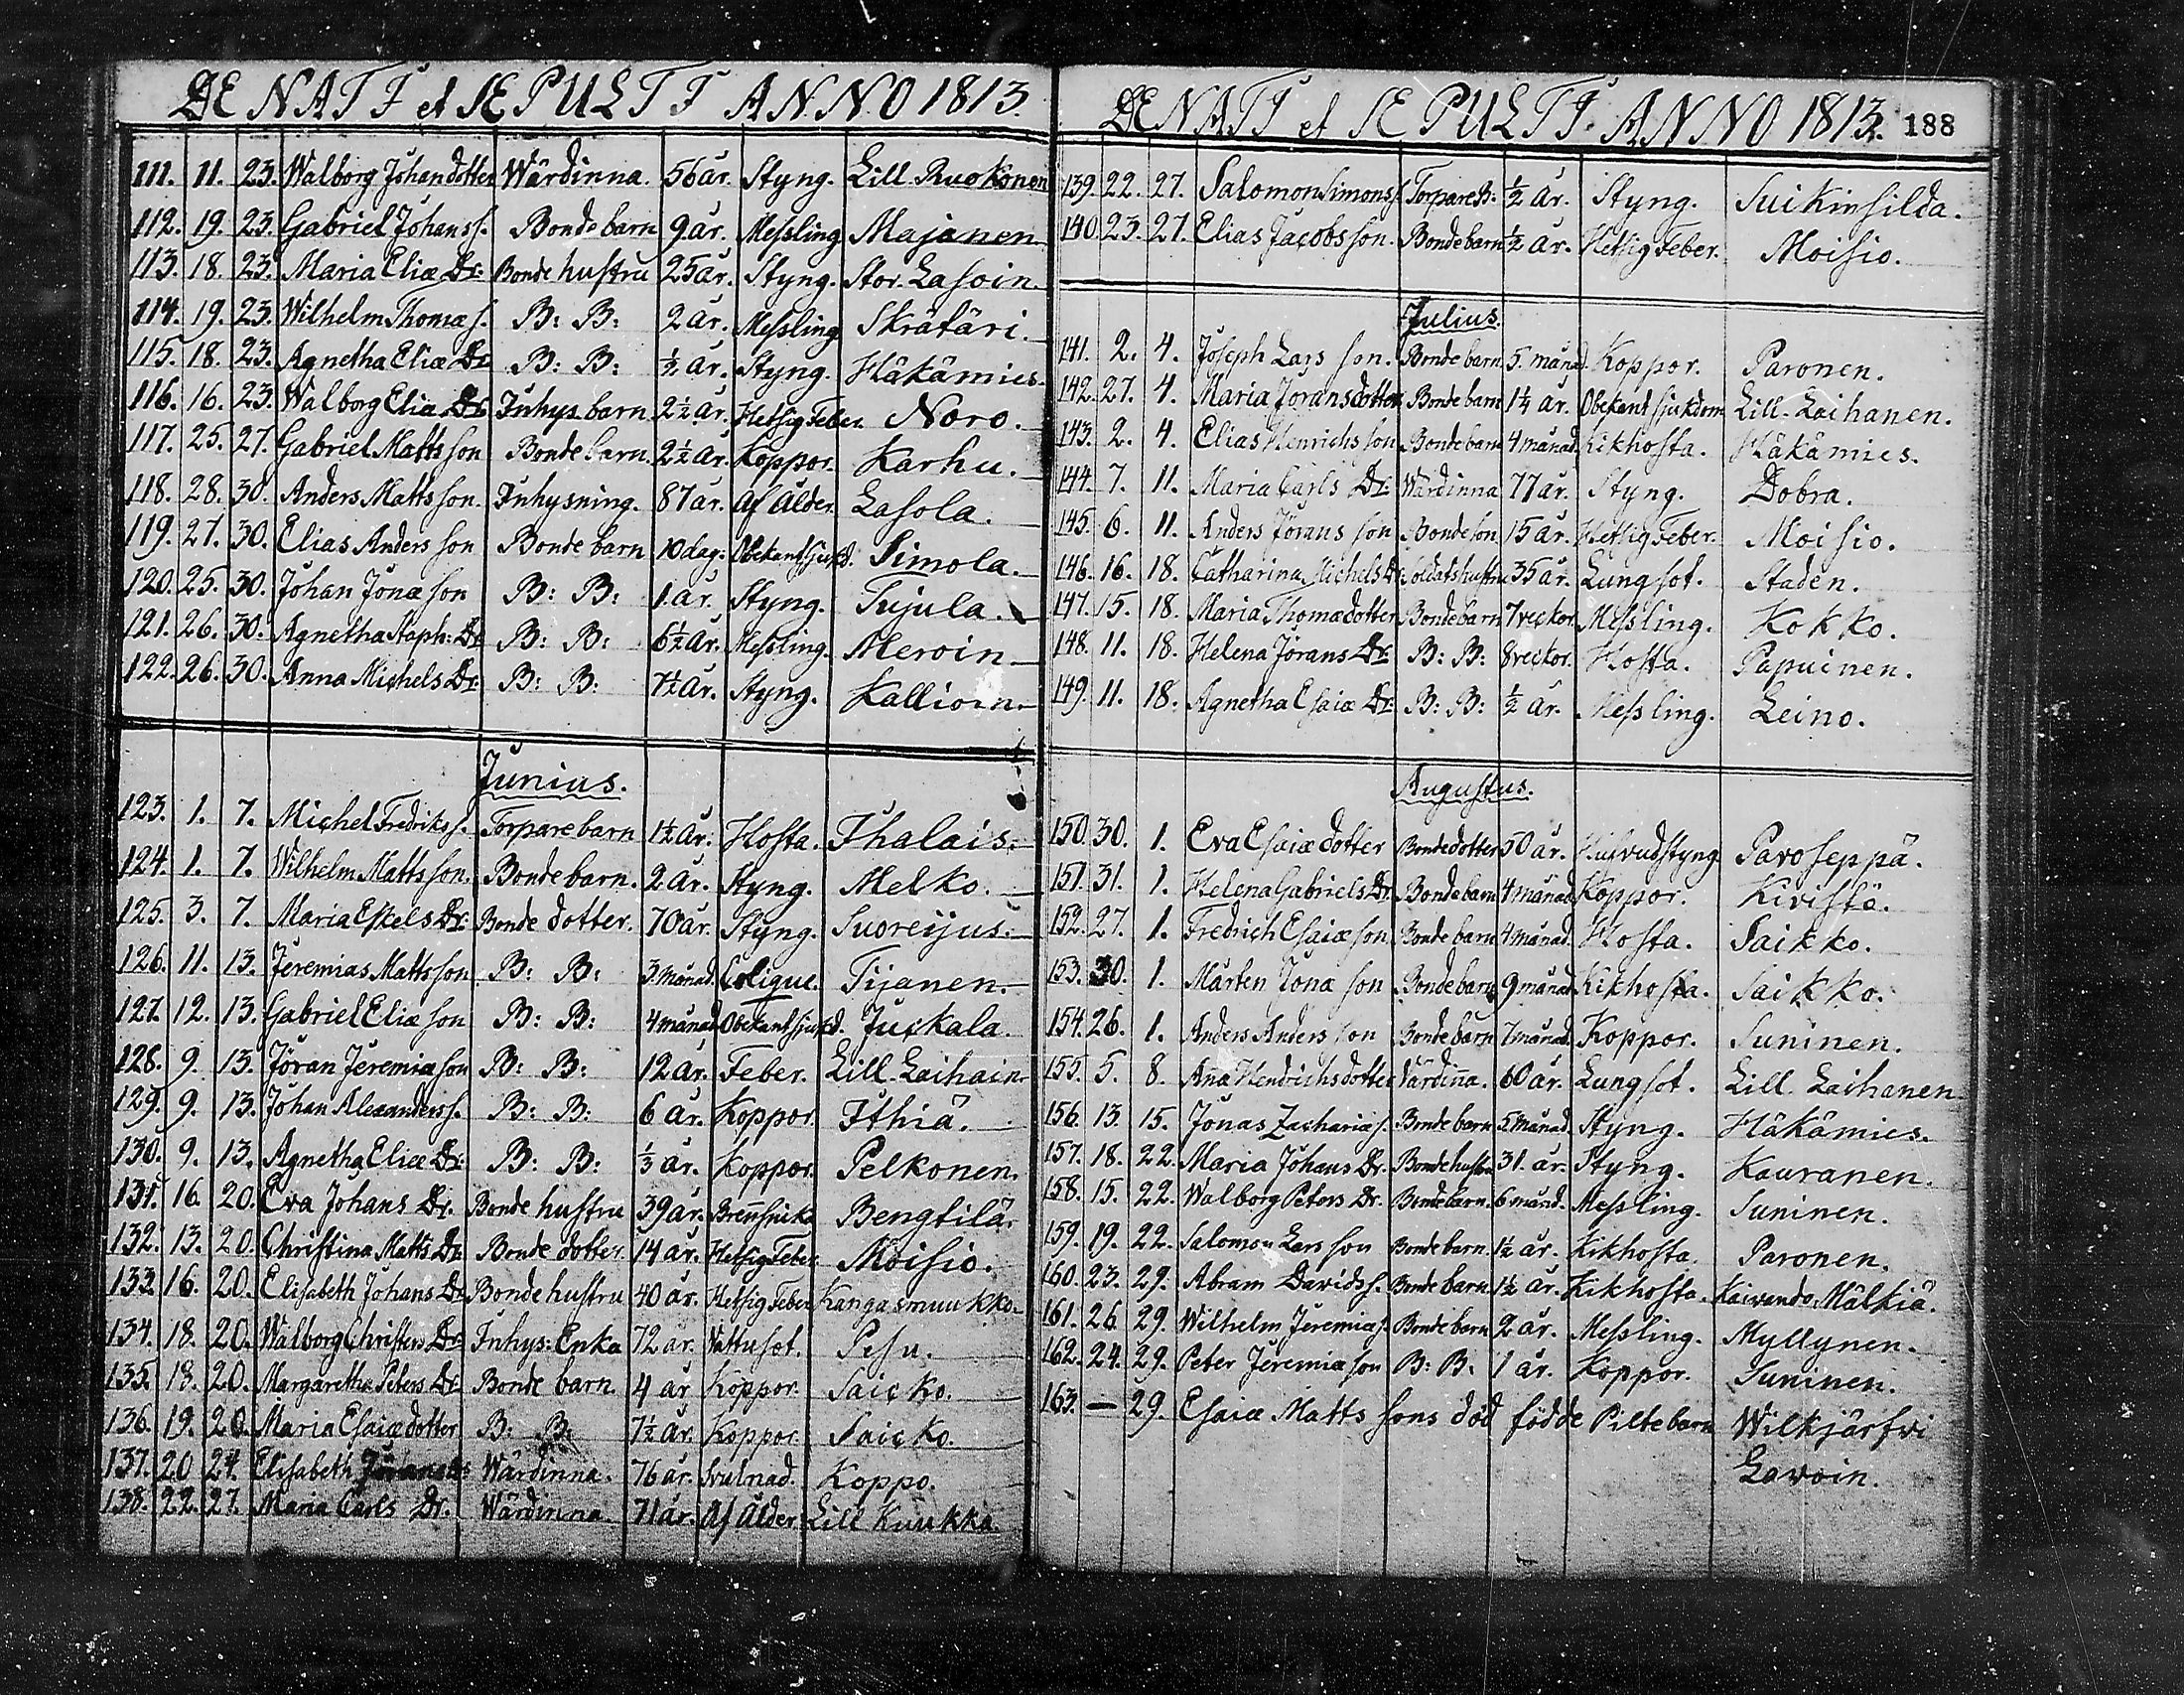 DENATI et SEPULTI ANNO 1813.
111. 11. 23. Walborg Johansdotter Wärdinna. 56 år. Styng. Lill. Ruokonen
112. 19. 23. Gabriel Johans s. Bonde barn 9 år. Messling Majanen
113. 18. 23. Maria Eliæ Dr. Bonde hustru 25 år. Styng. Stor. Lasoin.
114. 19. 23. Wilhelm Thomæ s. B: B: 2 år. Messling Skräfäri.
115. 18. 23. Agnetha Eliæ Dr B: B: ½ år. Styng. Häkämies.
116. 16. 23. Walborg Eliæ Dr. Inhys barn 2½ år. Hetsig Feber. Noro.
117. 25. 27. Gabriel Matts son Bonde barn. 2½ år. Koppor. Karhu.
118. 28. 30. Anders Matts son. Inhysning. 87 år. Af ålder. Lasola.
119. 27. 30. Elias Anders son Bonde barn 10 dag. Obekant sjukd. Simola.
120. 25. 30. Johan Jonæ son B: B: 1. år. Styng. Tujula.
121. 26. 30. Agnetha Staph: Dr B: B: 6½ år. Messling. Meroin
122. 26. 30. Anna Michels Dr. B: B: 7½ år. Styng. Kallioin.
Junius.
123. 1. 7. Michel Fredriks s. Torpare barn 1½ år. Hosta. Ihalais.
124. 1. 7. Wilhelm Matts son. Bonde barn. 2 år. Styng. Melko.
125. 3. 7. Maria Eskels Dr. Bonde dotter. 70 år. Styng. Suoreijus.
126. 11. 13. Jeremias Matts son B: B: 3. månad. Colique. Tijanen.
127. 12. 13. Gabriel Eliæ son B: B: 4 månad Obekant sjukd. Juckala.
128. 9. 13. Jöran Jeremiæ son B: B: 12 år. Feber. Lill. Laihain.
129. 9. 13. Johan Alexanders s. B: B: 6 år. Koppor. Ithiä.
130. 9. 13. Agnetha Eliæ Dr. B: B: ⅓ år. Koppor. Pelkonen.
131. 16. 20. Eva Johans Dr. Bonde hustru 39 år. Bengtilä.
132. 13. 20. Christina Matts Dr. Bonde dotter. 14 år. Hetsig Feber. Moisio.
133. 16. 20. Elisabeth Johans Dr. Bonde hustru 40 år. Hetsig Feber Kangasmuukko.
134. 18. 20. Walborg Christers Dr. Inhys: Enka 72 år. Vattusot. Pesu.
135. 18. 20. Margaretha Peters Dr. Bonde barn. 4 år Koppor. Saicko.
136. 19. 20. Maria Esaiæ dotter B: B: 7½ år. Koppor. Saicko.
137. 20 24. Elisabeth Wärdinna. 76 år. Svulnad. Koppo.
138. 22. 27. Maria Carls Dr. Wärdinna. 71 år. Af ålder. Lill Kuukka.
DENATI et SEPULTI ANNO 1813. 188
139. 22. 27. Salomon Simons s. Torpare B: ½ år. Styng. Suikinsilda.
140. 23. 27. Elias Jacobs son. Bonde barn ½ år. Hetsig Feber. Moisio.
Julius.
141. 2. 4. Joseph Lars son. Bonde barn 5. månad. Koppor. Paronen.
142. 27. 4. Maria Jöransdotter Bonde barn 1¼ år. Obekant sjukdom Lill. Laihanen.
143. 2. 4. Elias Henrichs son Bonde barn 4 månad. Kikhosta. Häkämies.
144. 7. 11. Maria Carls Dr. Wärdinna 77 år. Styng. Dobra.
145. 6. 11. Anders Jörans son Bonde son 15 år. Hetsig Feber. Moisio.
146. 16. 18. Catharina Michels Dr. Soldats hustru 35 år. Lungsot. Staden.
147. 15. 18. Maria Thomædotter Bonde barn 7 veckor. Messling. Kokko.
148. 11. 18. Helena Jörans Dr. B: B: 8 veckor. Hosta. Papuinen.
149. 11. 18. Agnetha Esaiæ Dr. B: B: ½ år. Messling. Leino.
Augustus.
150. 30. 1. Eva Esaiæ dotter Bondedotter 50 år. Hufvudstyng Paroseppä.
151. 31. 1. Helena Gabriels Dr. Bonde barn 4 månad. Koppor. Kivistö.
152. 27. 1. Fredrich Esaiæ son Bonde barn 4 månad. Hosta. Saikko.
153. 30. 1. Mårten Jonæ son Bonde barn 9 månad. Kikhosta. Saikko.
154. 26. 1. Anders Anders son Bonde barn 7 månad. Koppor. Suninen.
155. 5. 8. Aña Hendrichsdotter Värdiña. 60 år. Lungsot. Lill. Laihanen
156. 13. 15. Jonas Zachariæ s. Bonde barn 5. månad. Styng. Häkämies.
157. 18. 22. Maria Johans Dr. Bonde hustru 31. år. Styng. Kauranen.
158. 15. 22. Walborg Peters Dr. Bonde barn. 6 månd. Messling. Suninen.
159. 19. 22. Salomon Lars son Bonde barn. 1½ år. Kikhosta. Paronen.
160. 23. 29. Abram Davids s. Bonde barn. 1½ år. Kikhosta. Kaivando Mälkiä.
161. 26. 29. Wilhelm Jeremiæ s. Bonde barn 2 år. Messling. Myllynen.
162. 24. 29. Peter Jeremiæ son B: B: 1 år. Koppor. Suninen.
163. — 29. Esaiæ Matts sons död födde Pilte barn Wilkjärfwi
Lavoin.